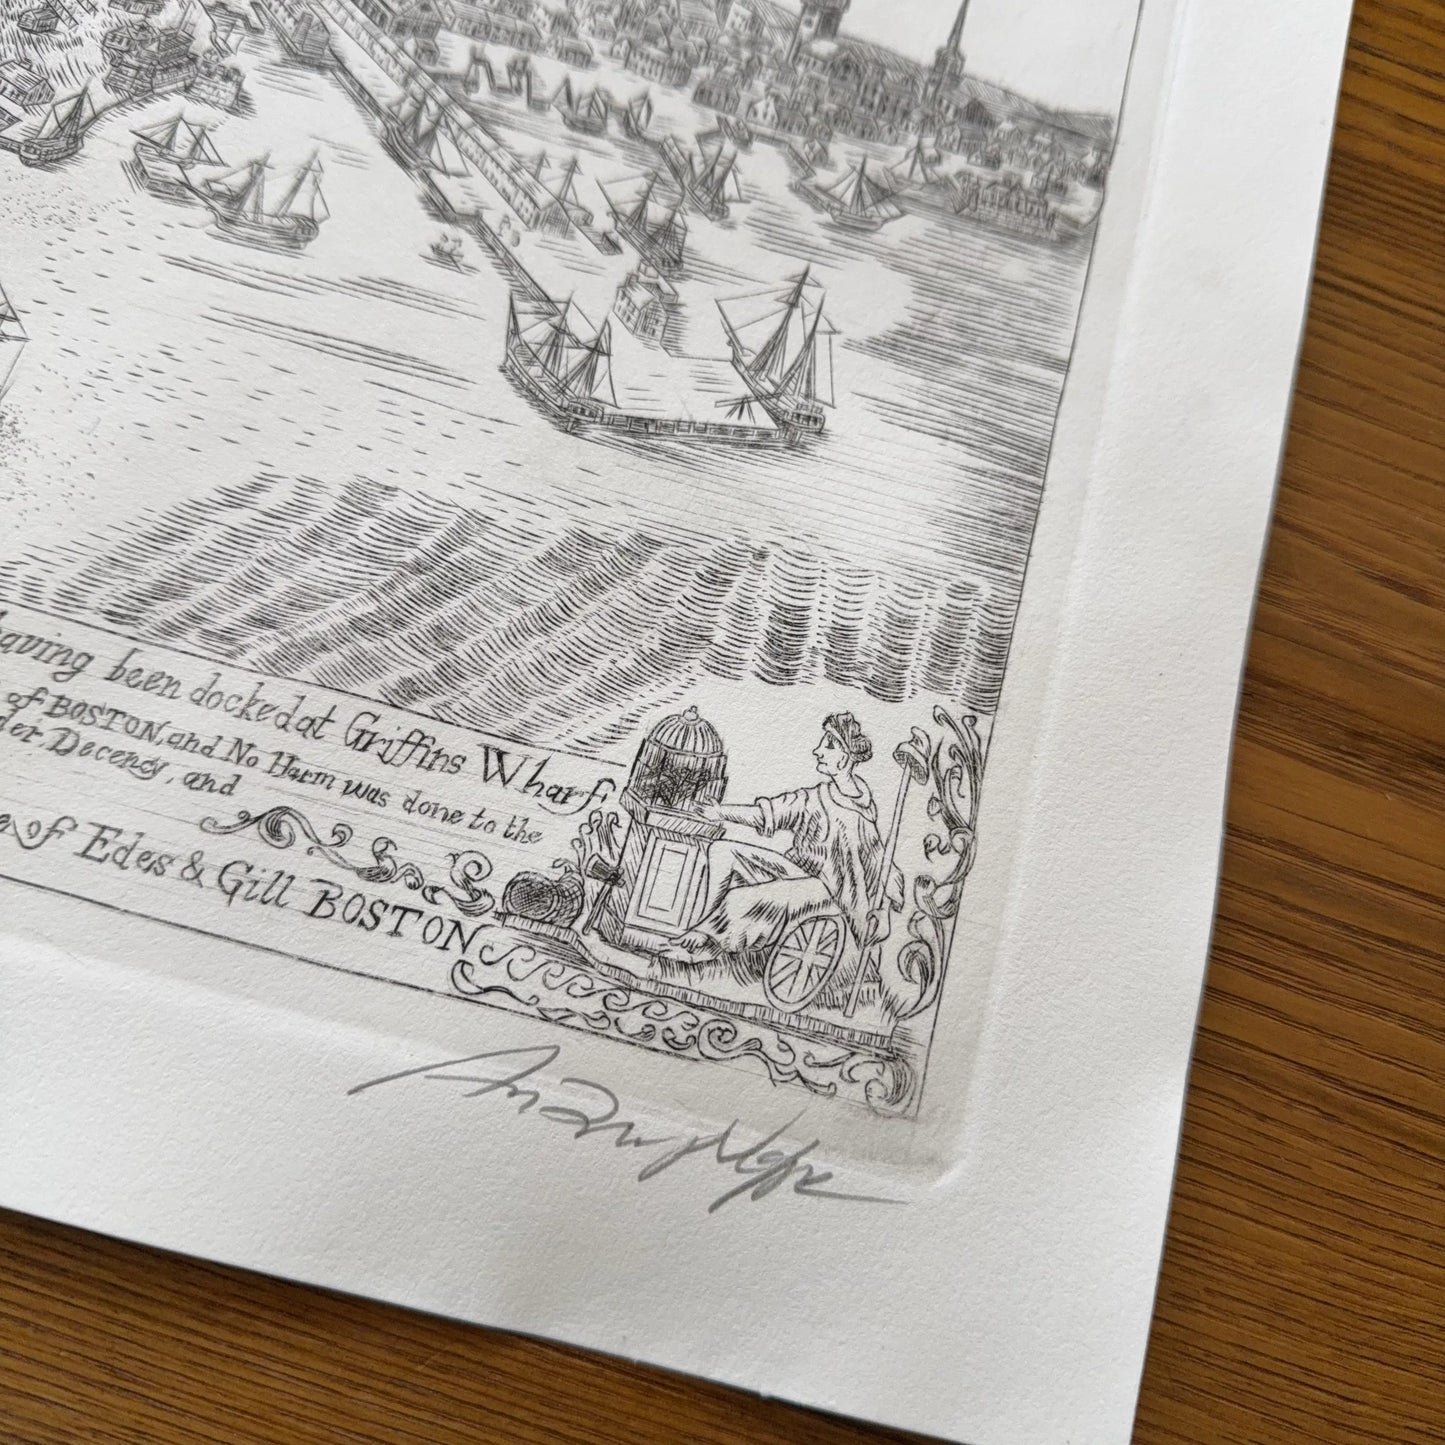 having been docked at Griffins Wharf
of BOSTON, and No Harm was done to the
der, Decency, and
of Edes & Gill BOSTON